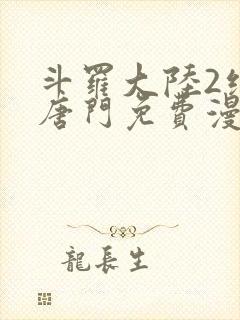 斗羅大陸2
唐門免費漫
龍長生